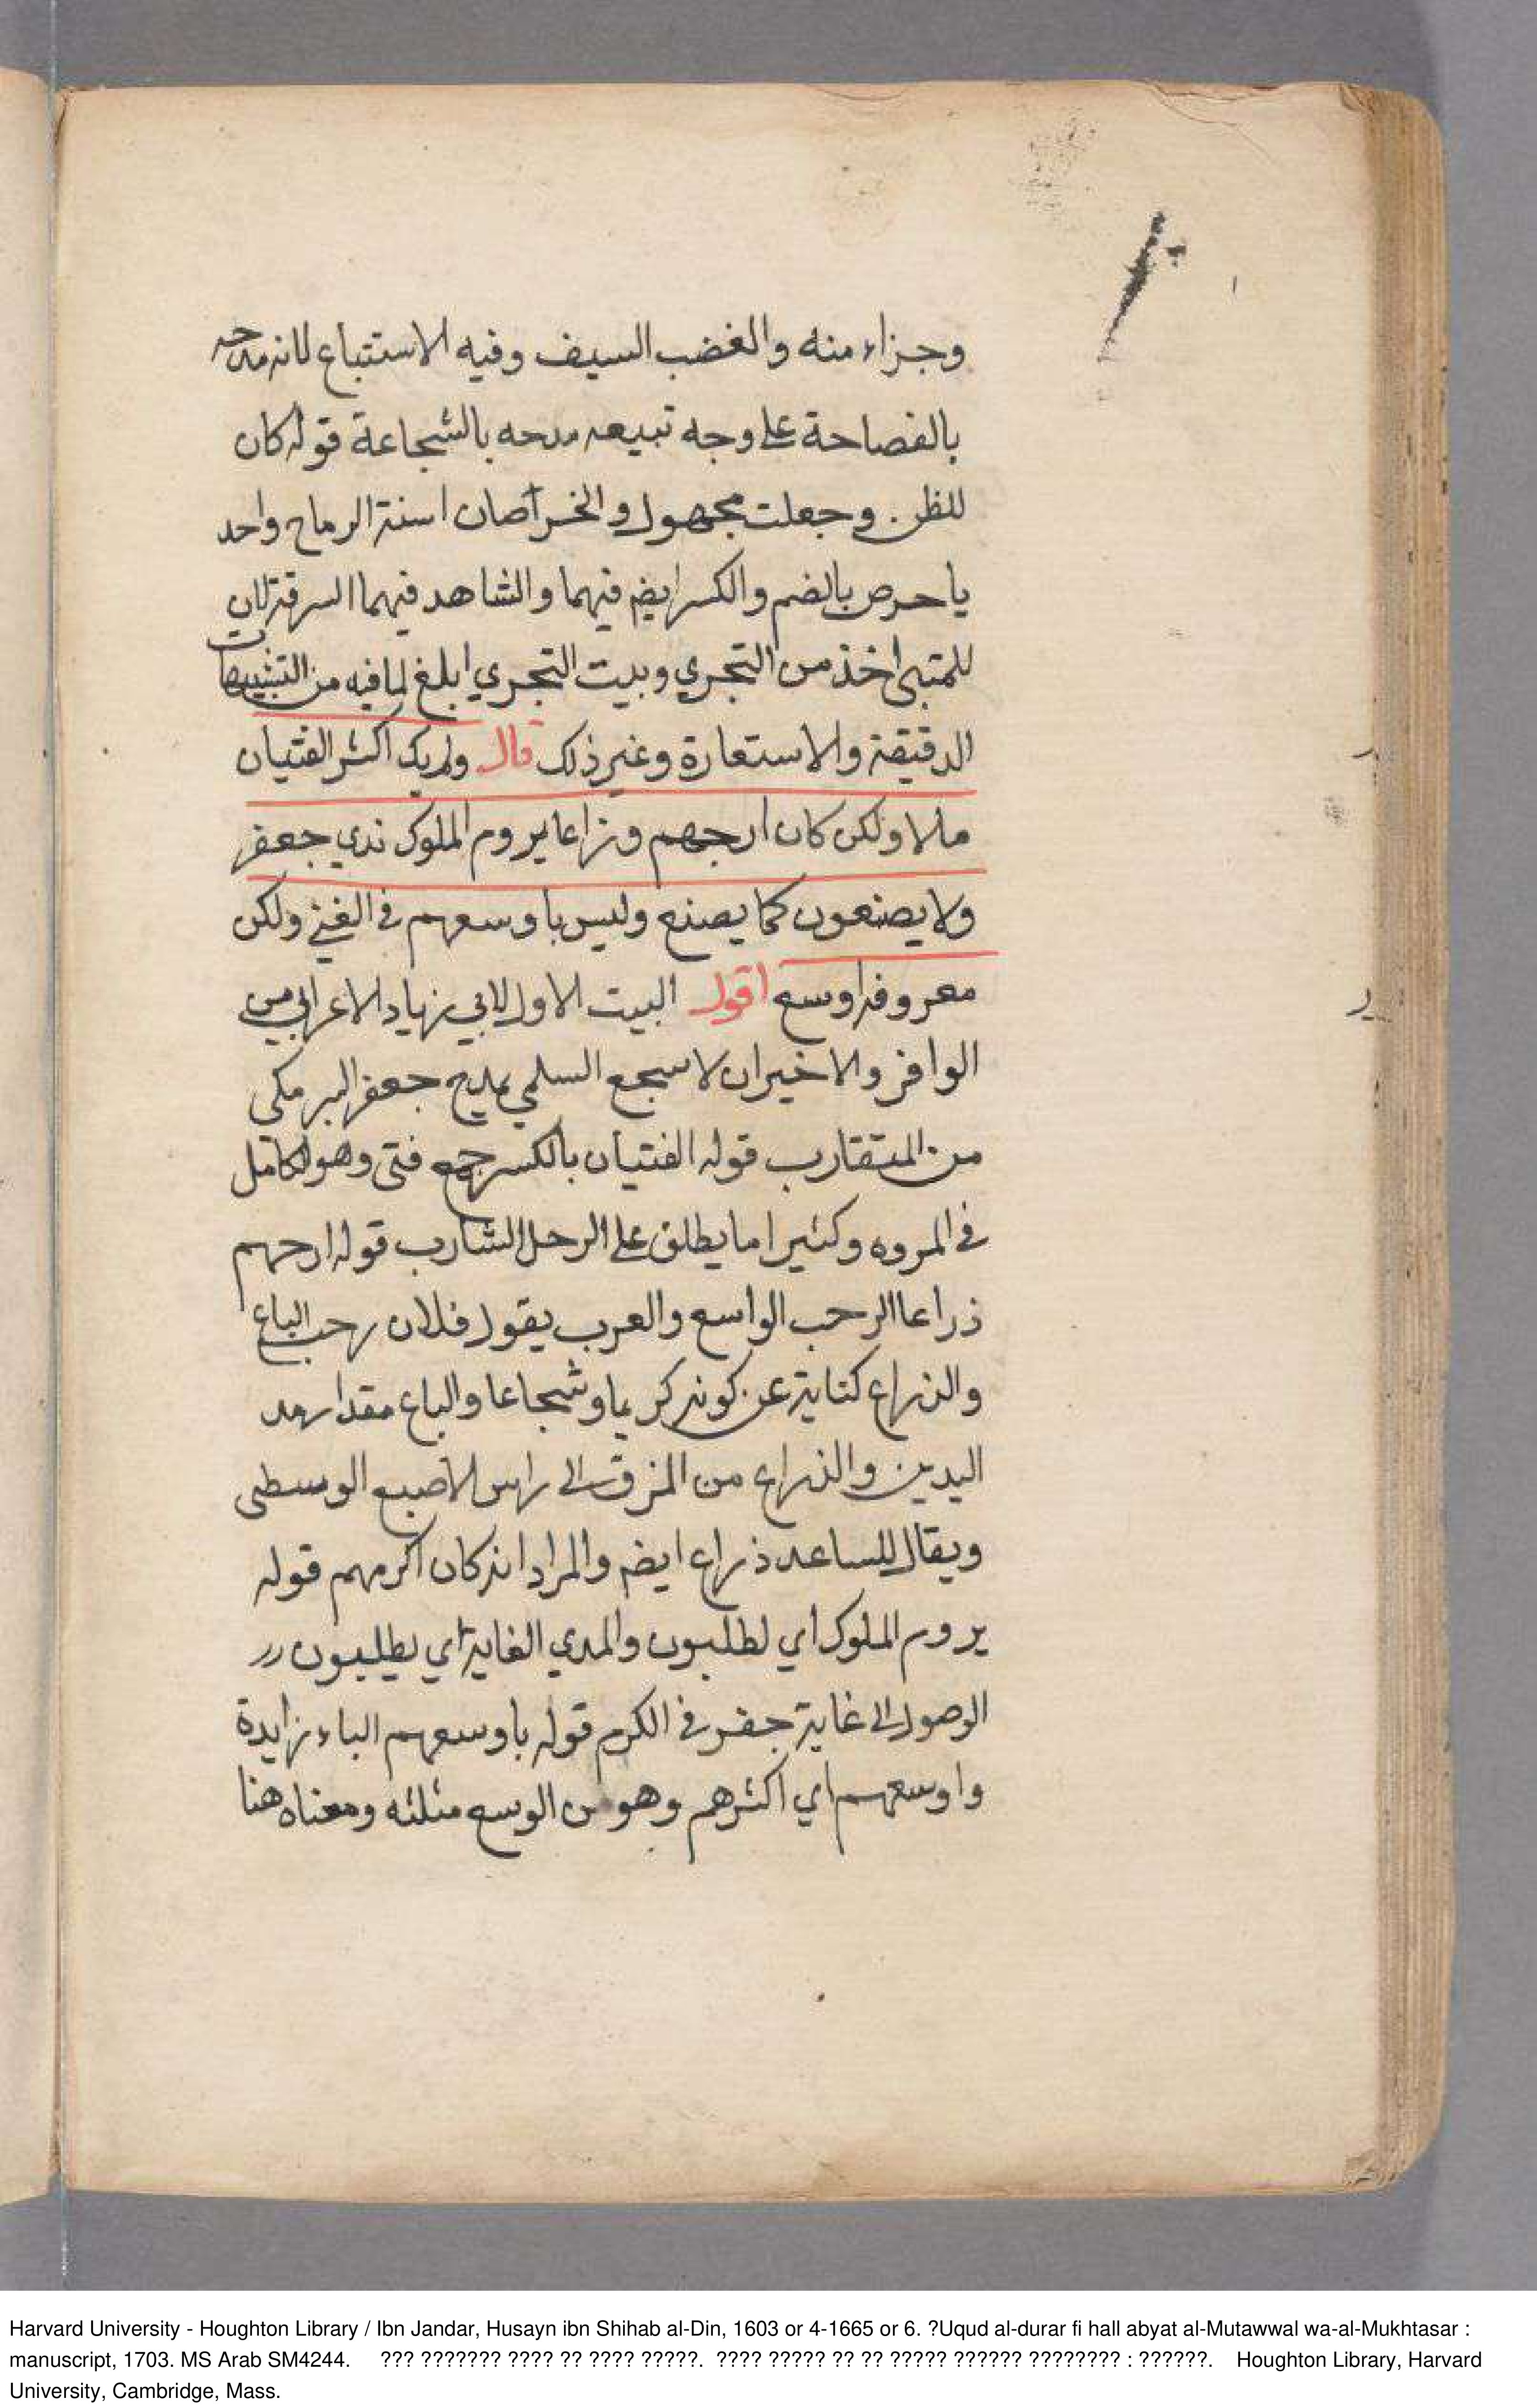 وجزاء منه والغضب السيف وفيه الاستتباع لانه مدحه
بالفصاحة على وجه تبيعه مدحه بالشجاعة قوله كان
للظن وجعلت مجهول والخرصان اسنة الرماح واحد
يا حرص بالضم والكسر ايضم فيهما والشاهد فيهما السرقة لان
للمتبى اخذ من التجري وبيت التجري ابلغ لما فيه من التشبيهات
الدقيقة والاستعارة وغير ذلك قال ولم يك اكثر الفتيان
مالا ولكن كان ارجهم وزراعا يروم الملوك ندي جعفر
ولا يصنعون كما يصنع وليس باوسعهم في الغني ولكن
معروفه اوسع اقول البيت الاول لابي زياد الاعرابي من
الوافر والاخيران لاسجع السلمي يمدح جعفر البرمكي
من المتقارب قوله الفتيان بالكسر جمع فتى وهو الكامل
في المروه وكثيرا ما يطلق على الرجل الشارب قوله ارحهم
ذراعا الرحب الواسع والعرب يقول فلان رحب الباع
والذراع كناية عن كونه كريما وشجاعا والباع مقدار مد
اليدين والذراع من المرفق الى راس الاصبع الوسطى
ويقال للساعد ذراع ايضم والمراد انه كان اكرمهم قوله
يروم الملوك اي لطلبون والمدي الغاية اي يطلبون
الوصول الى غاية جفر في الكرم قوله باوسعهم الباء زايدة
واوسعهم اي اكثرهم وهو من الوسع مثلثه ومعناه هنا
Harvard University - Houghton Library / Ibn Jandar, Husayn ibn Shihab al-Din, 1603 or 4-1665 or 6. ?Uqud al-durar fi hall abyat al-Mutawwal wa-al-Mukhtasar :
manuscript, 1703. MS Arab SM4244. ??? ??????? ???? ?? ???? ?????. ???? ????? ?? ?? ????? ?????? ???????? : ??????. Houghton Library, Harvard
University, Cambridge, Mass.